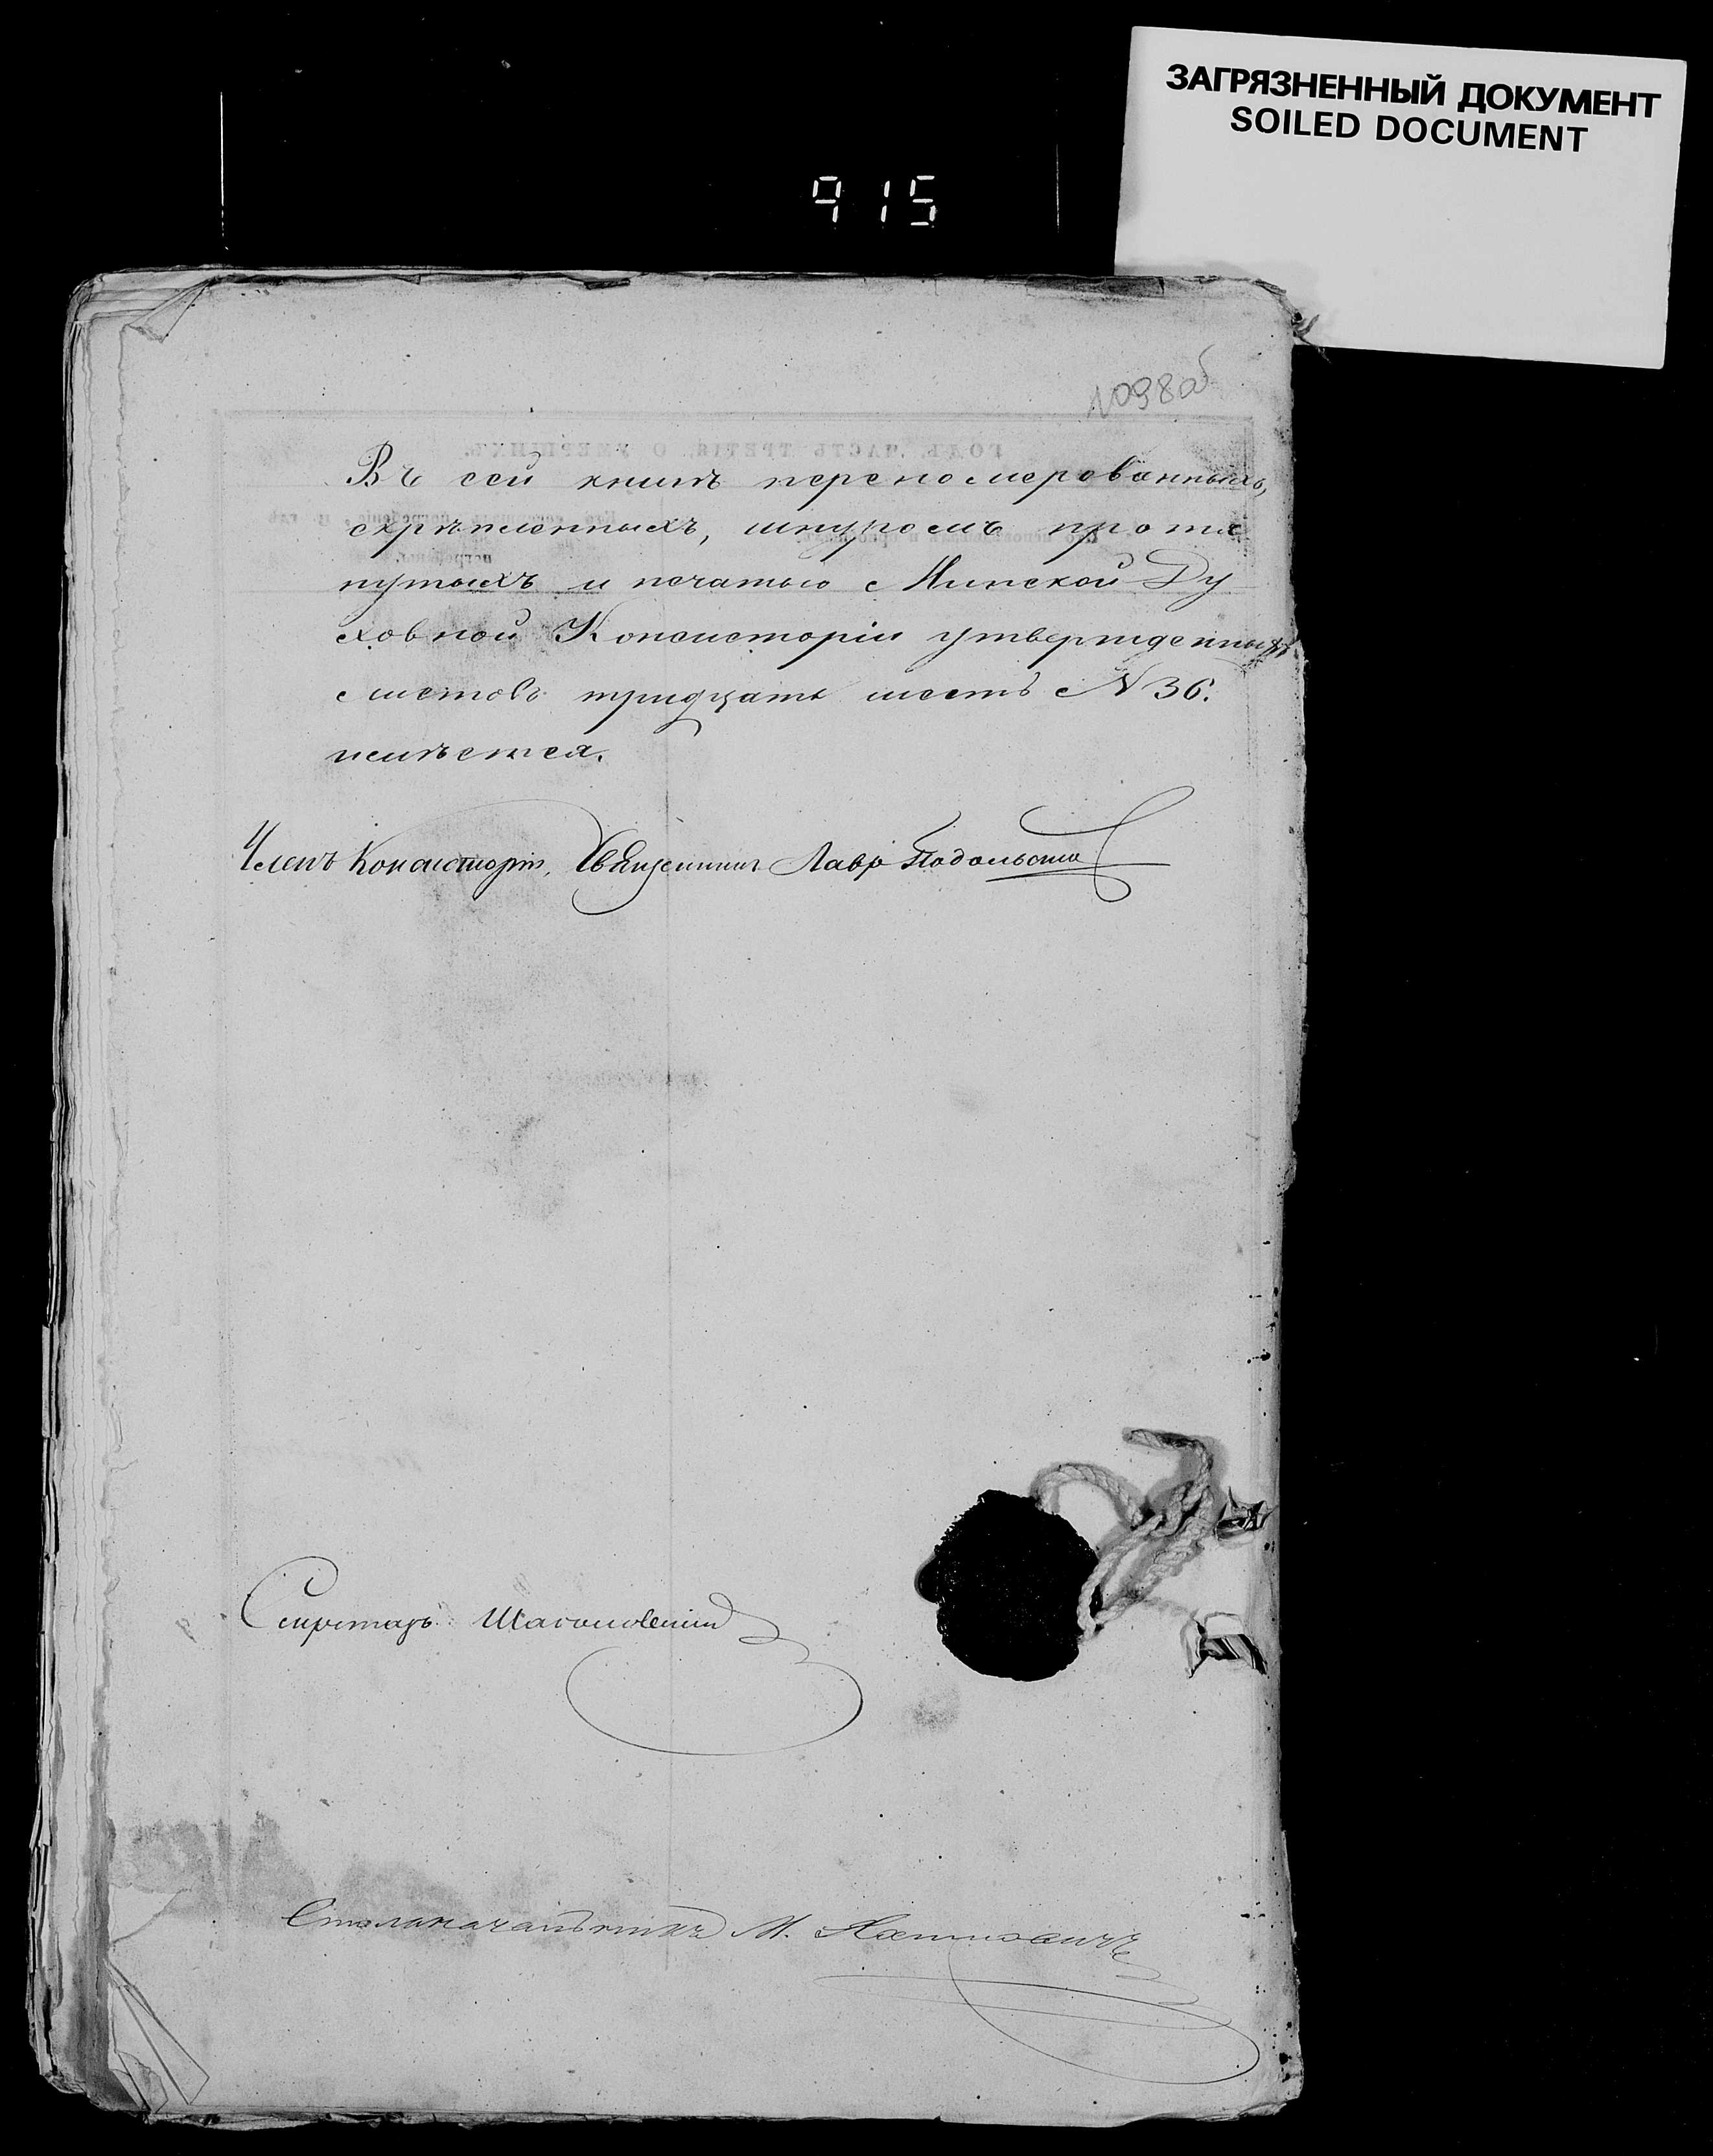 ЗАГРЯЗНЕННЫЙ ДОКУМЕНТ
SOILED DOCUMENT
915
1098об
Въ сей книгѣ переномерованныхъ,
скрѣпленныхъ, шнуромъ протя
нутыхъ и печатью Минской Ду
ховной Консисторіи утвержденныхъ
листовъ тридцать шесть N 36.
имѣется.
Членъ Консисторіи, Священникъ Лавръ Подольскій
Секретарь
Столоначальникъ М.